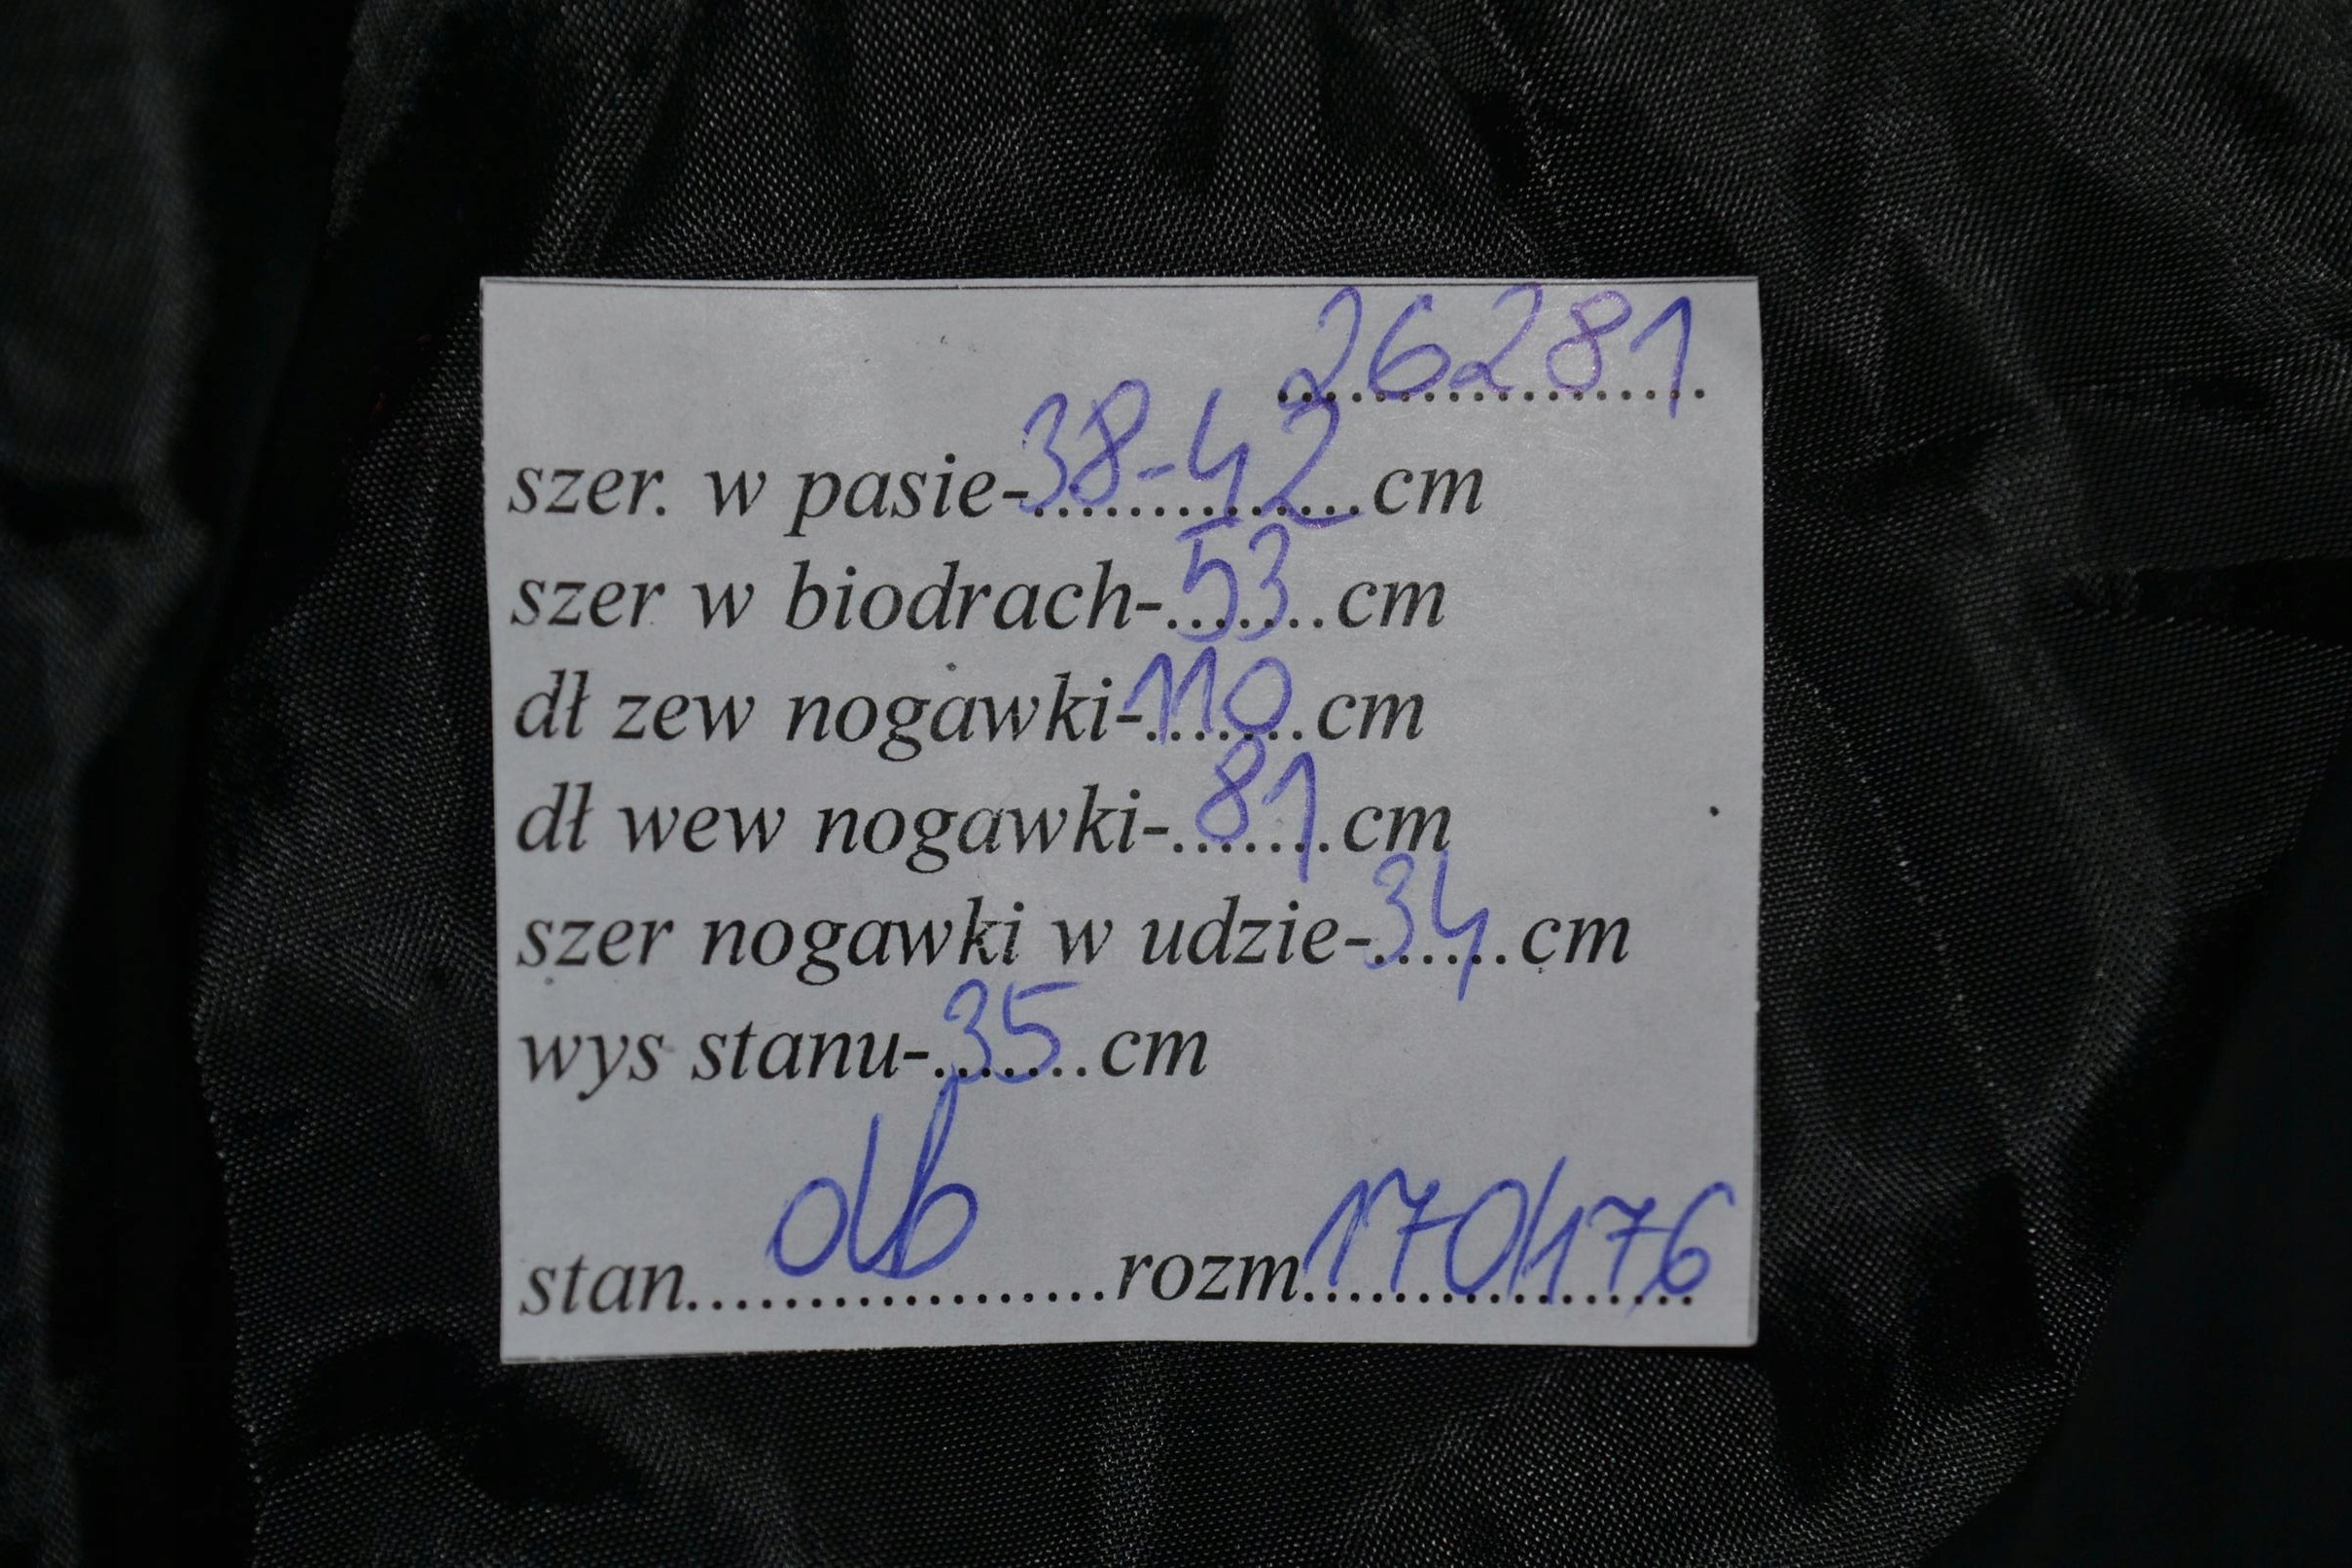 26281
szer. w pasie-38-42cm
szer w biodrach-53cm
dł zew nogawki-110cm
dł wew nogawki-81cm
szer nogawki w udzie-34cm
wys stanu-35cm
stan db rozm 170/176